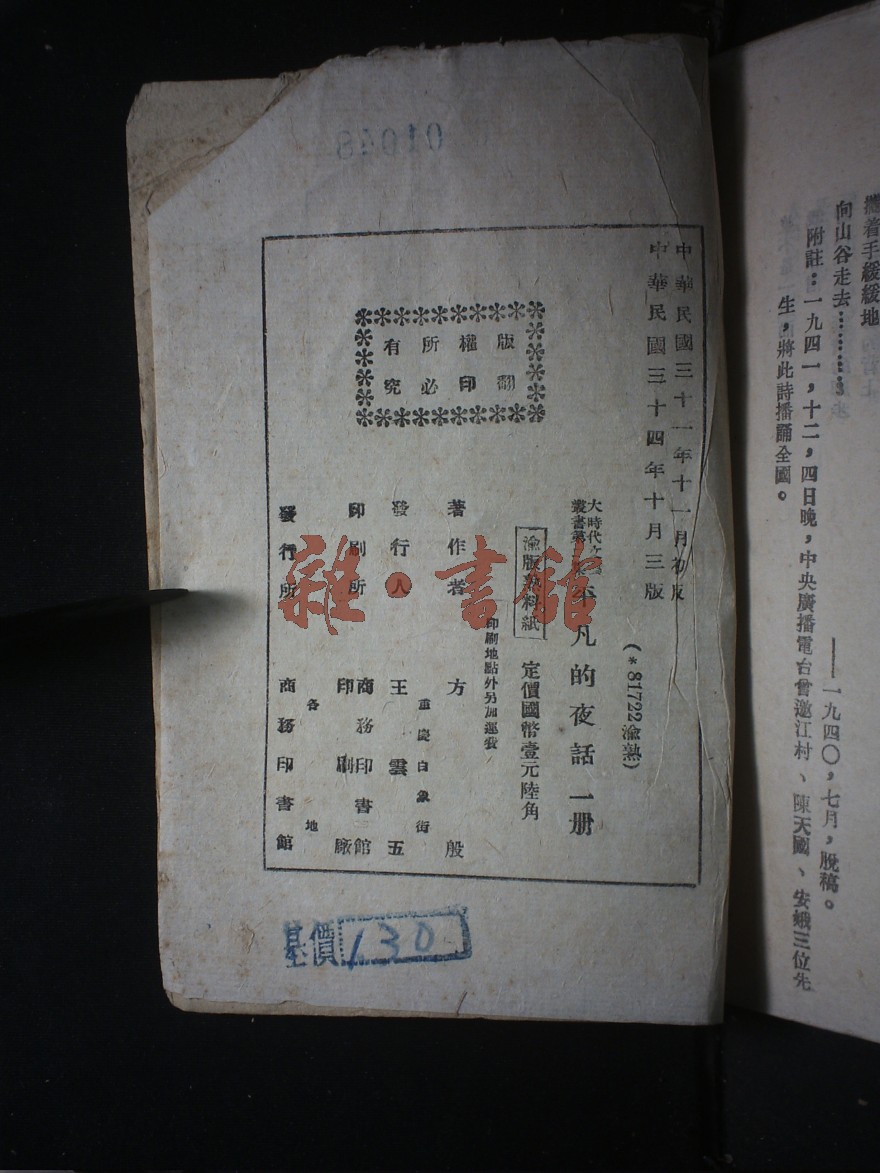 攜着手緩緩地
向山谷走去…………。
——一九四〇，七月，脫稿。
附註：一九四一，十二，四日晚，中央廣播電台曾邀江村、陳天國、安娥三位先
生，將此詩播誦全國。
中華民國三十一年十一月初版
中華民國三十四年十月三版
(*81722渝熟)
大時代文藝
叢書
平凡的夜話一册
渝版熟料紙
定價國幣壹元陸角
印刷地點外另加運費
著作者 方殷
重慶白象街
發行人 王雲五
印刷所 商務印書館
印刷廠
各地
發行所 商務印書館
版權所有
翻印必究
基價 130
01048
雜·書館